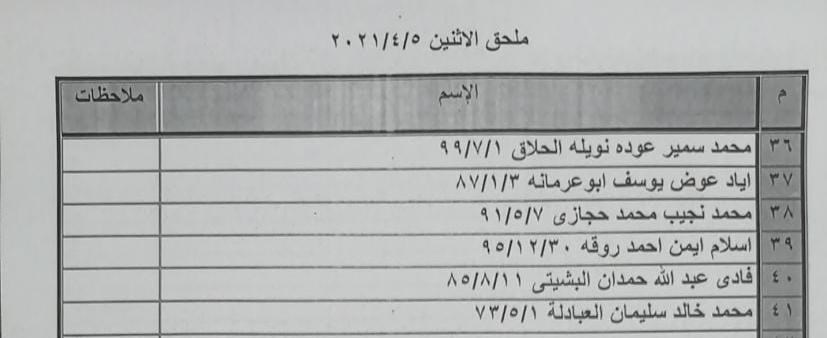 ملحق الاثنين ٢٠٢١/٤/٥
م الإسم ملاحظات
٣٦ محمد سمير عوده نويله الحلاق ٩٩/٧/١
٣٧ اياد عوض يوسف ابوعرمانه ٨٧/١/٣
٣٨ محمد نجيب محمد حجازى ٩١/٥/٧
٣٩ اسلام ايمن احمد روقه ٩٥/١٢/٣٠
٤٠ فادى عبد الله حمدان البشيتى ٨٥/٨/١١
٤١ محمد خالد سليمان العبادلة ٧٣/٥/١